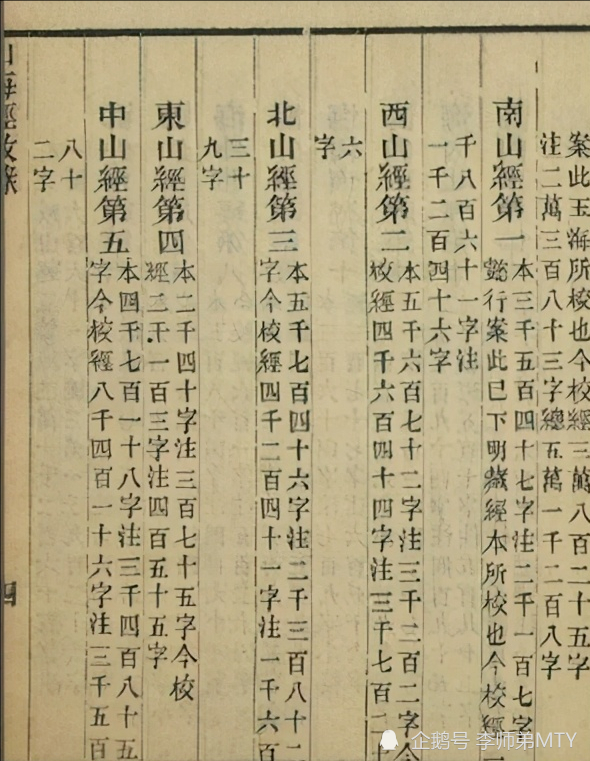 案此玉海所校也今校經三萬八百二十五字
注二萬三百八十三字總五萬一千二百八字
南山經第一
本三千五百四十七字注二千一百七字
懿行案此巳下明藏經本所校也今校經
千八百六十一字注
一千二百四十六字
西山經第二
本五千六百七十二字注三千二百二字今
校經四千六百四十四字注三千七百二十
六
字
北山經第三
本五千七百四十六字注二千三百八十二
字今校經四千二百四十一字注一千六百
三十
九字
東山經第四
本二千四十字注三百七十五字今校
經二千一百三字注四百五十五字
中山經第五
本四千七百一十八字注三千四百八十五
字今校經八千四百一十六字注三千五百
八十
二字
山海經敘錄
四
企鹅号 李师弟MTY